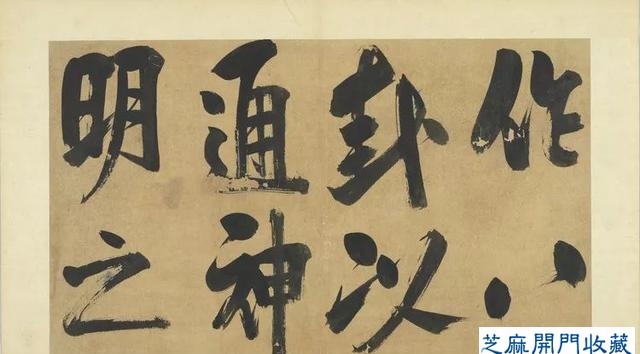 作八
卦以
通神
明之
芝麻開門收藏